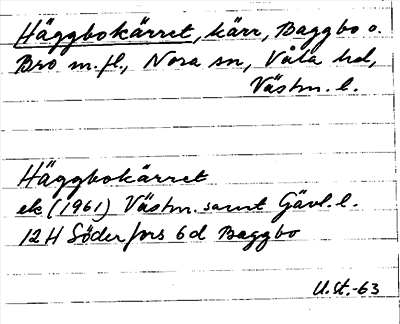 Häggbokärret, kärr, Baggbo o.
Bro m.fl., Nora sn, Våla hd,
Västm. l.
Häggbokärret
ek (1961) Västm. samt Gävl. l.
12 H Söderfors 6 d Baggbo
U. St. -63